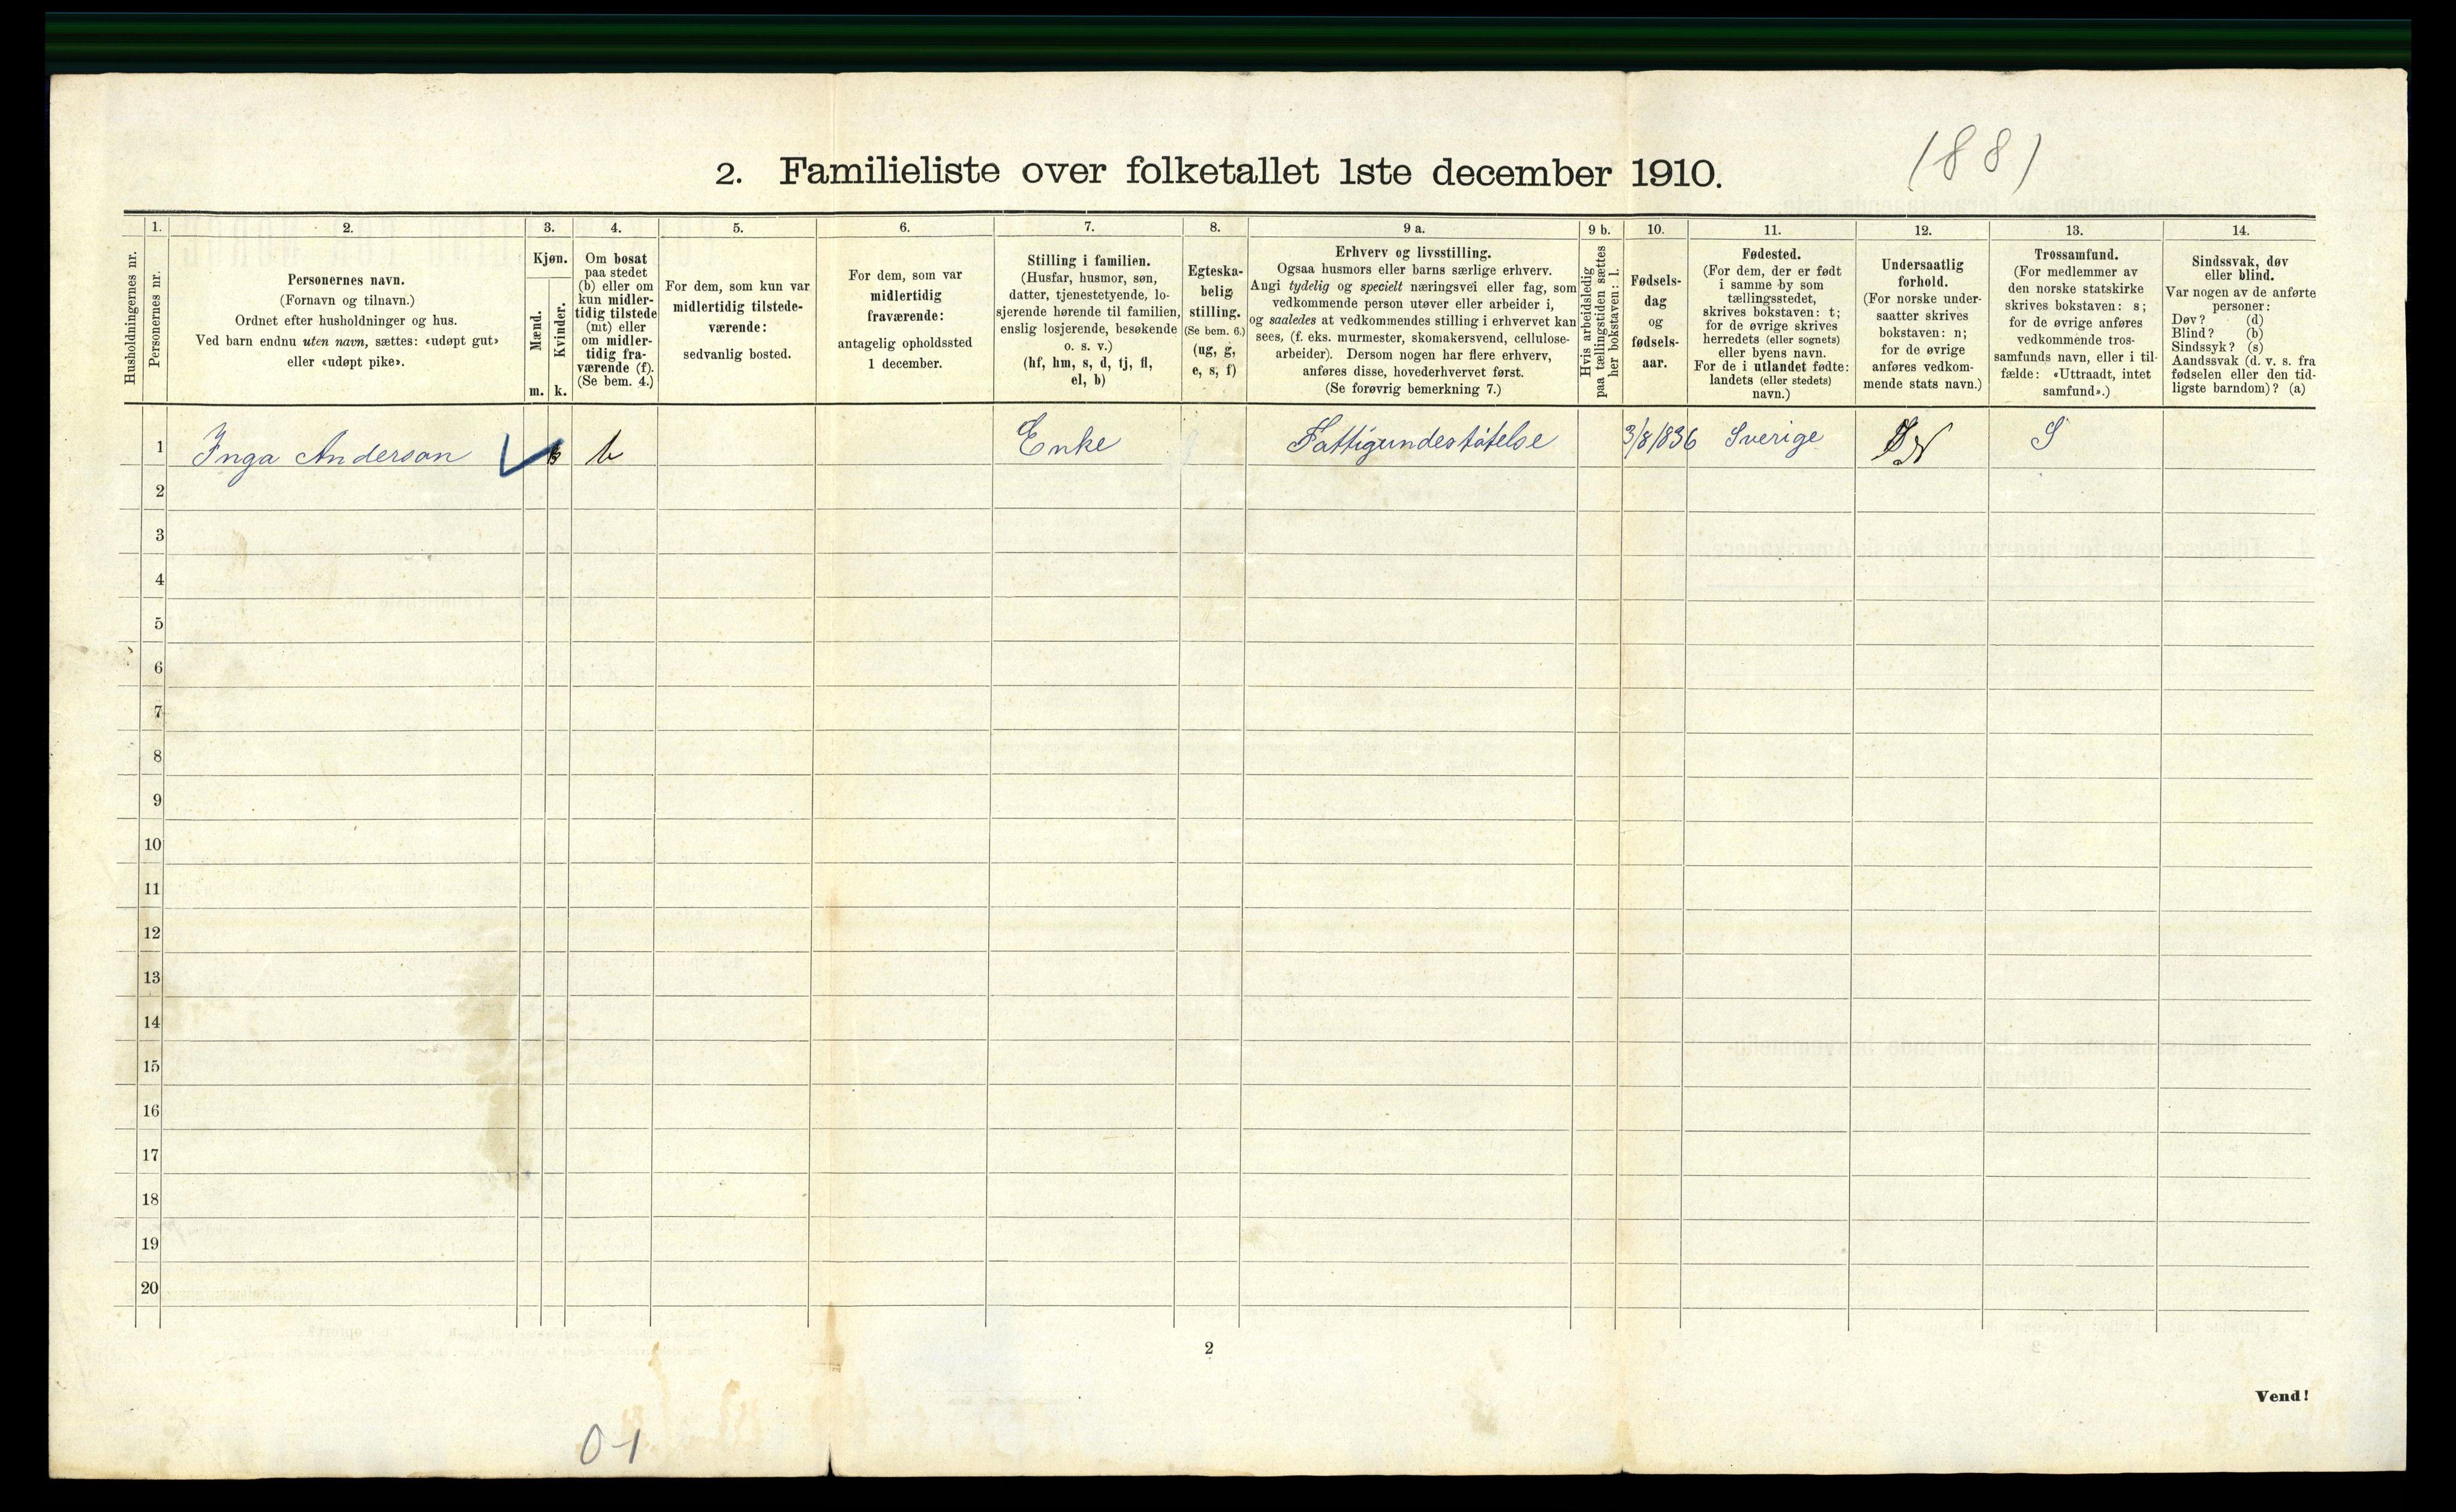 (88)
2. Familieliste over folketallet 1ste december 1910.
Husholdningernes nr.
1.
Personernes nr.
2.
Personernes navn.
(Fornavn og tilnavn.)
Ordnet efter husholdninger og hus.
Ved barn endnu uten navn, sættes: «udøpt gut»
eller «udøpt pike».
3.
Kjøn.
Mænd.
m.
Kvinder.
k.
4.
Om bosat
paa stedet
(b) eller om
kun midler-
tidig tilstede
(mt) eller
om midler-
tidig fra-
værende (f).
(Se bem. 4.)
5.
For dem, som kun var
midlertidig tilstede-
værende:
sedvanlig bosted.
6.
For dem, som var
midlertidig
fraværende:
antagelig opholdssted
1 december.
7.
Stilling i familien.
(Husfar, husmor, søn,
datter, tjenestetyende, lo-
sjerende hørende til familien,
enslig losjerende, besøkende
o. s. v.)
(hf, hm, s, d, tj, fl,
el, b)
8.
Egteska-
belig
stilling.
(Se bem. 6.)
(ug, g,
e, s, f)
9 a.
Erhverv og livsstilling.
Ogsaa husmors eller barns særlige erhverv.
Angi tydelig og specielt næringsvei eller fag, som
vedkommende person utøver eller arbeider i,
og saaledes at vedkommendes stilling i erhvervet kan
sees, (f. eks. murmester, skomakersvend, cellulose-
arbeider). Dersom nogen har flere erhverv,
anføres disse, hovederhvervet først.
(Se forøvrig bemerkning 7.)
9 b.
Hvis arbeidsledig
paa tællingstiden sættes
her bokstaven: l.
10.
Fødsels-
dag
og
fødsels-
aar.
11.
Fødested.
(For dem, der er født
i samme by som
tællingsstedet,
skrives bokstaven: t;
for de øvrige skrives
herredets (eller sognets)
eller byens navn.
For de i utlandet fødte:
landets (eller stedets)
navn.)
12.
Undersaatlig
forhold.
(For norske under-
saatter skrives
bokstaven: n;
for de øvrige
anføres vedkom-
mende stats navn.)
13.
Trossamfund.
(For medlemmer av
den norske statskirke
skrives bokstaven: s;
for de øvrige anføres
vedkommende tros-
samfunds navn, eller i til-
fælde: «Uttraadt, intet
samfund».)
14.
Sindssvak, døv
eller blind.
Var nogen av de anførte
personer:
Døv? (d)
Blind? (b)
Sindssyk? (s)
Aandssvak (d. v. s. fra
fødselen eller den tid-
ligste barndom)? (a)
1 Inga Anderson k b Enke Fattigundestøtelse 3/8/836 Sverige N S
2
3
4
5
6
7
8
9
10
11
12
13
14
15
16
17
18
19
20
2
Vend!
0-1